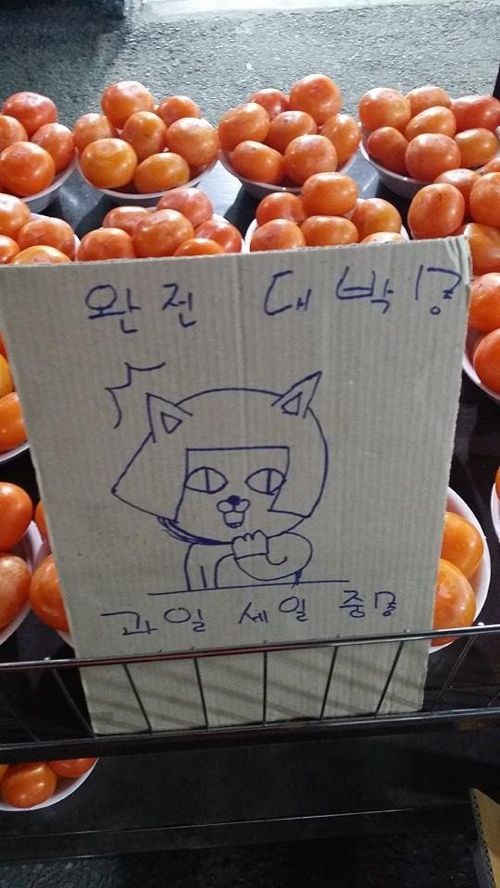 완전 대박!?
과일 세일 중!?